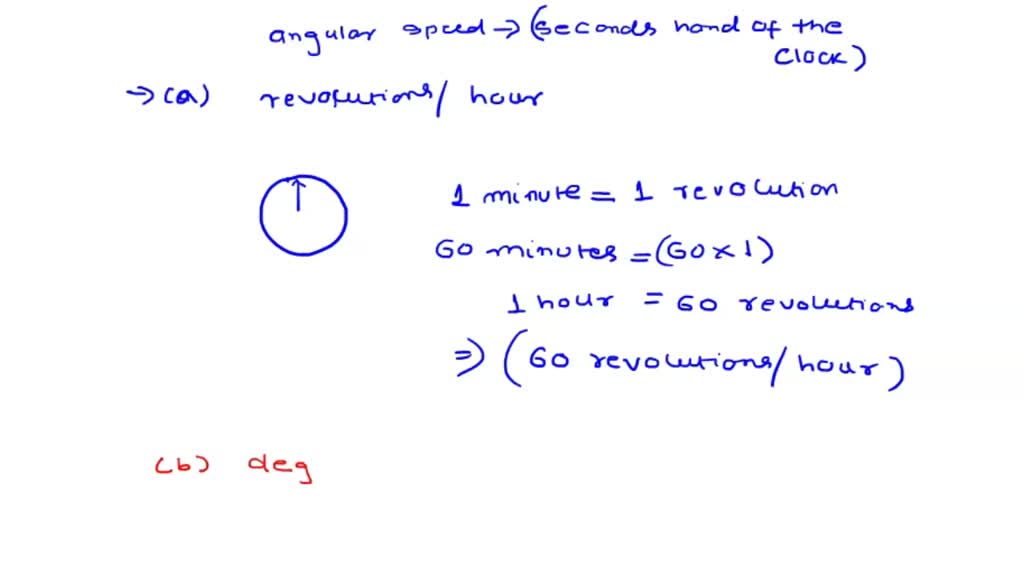 angular speed → (seconds hand of the
clock)
→ (a) revolutions/ hour
1 minute = 1 revolution
60 minutes = (60 × 1)
1 hour = 60 revolutions
⇒ (60 revolutions/hour)
(b) deg